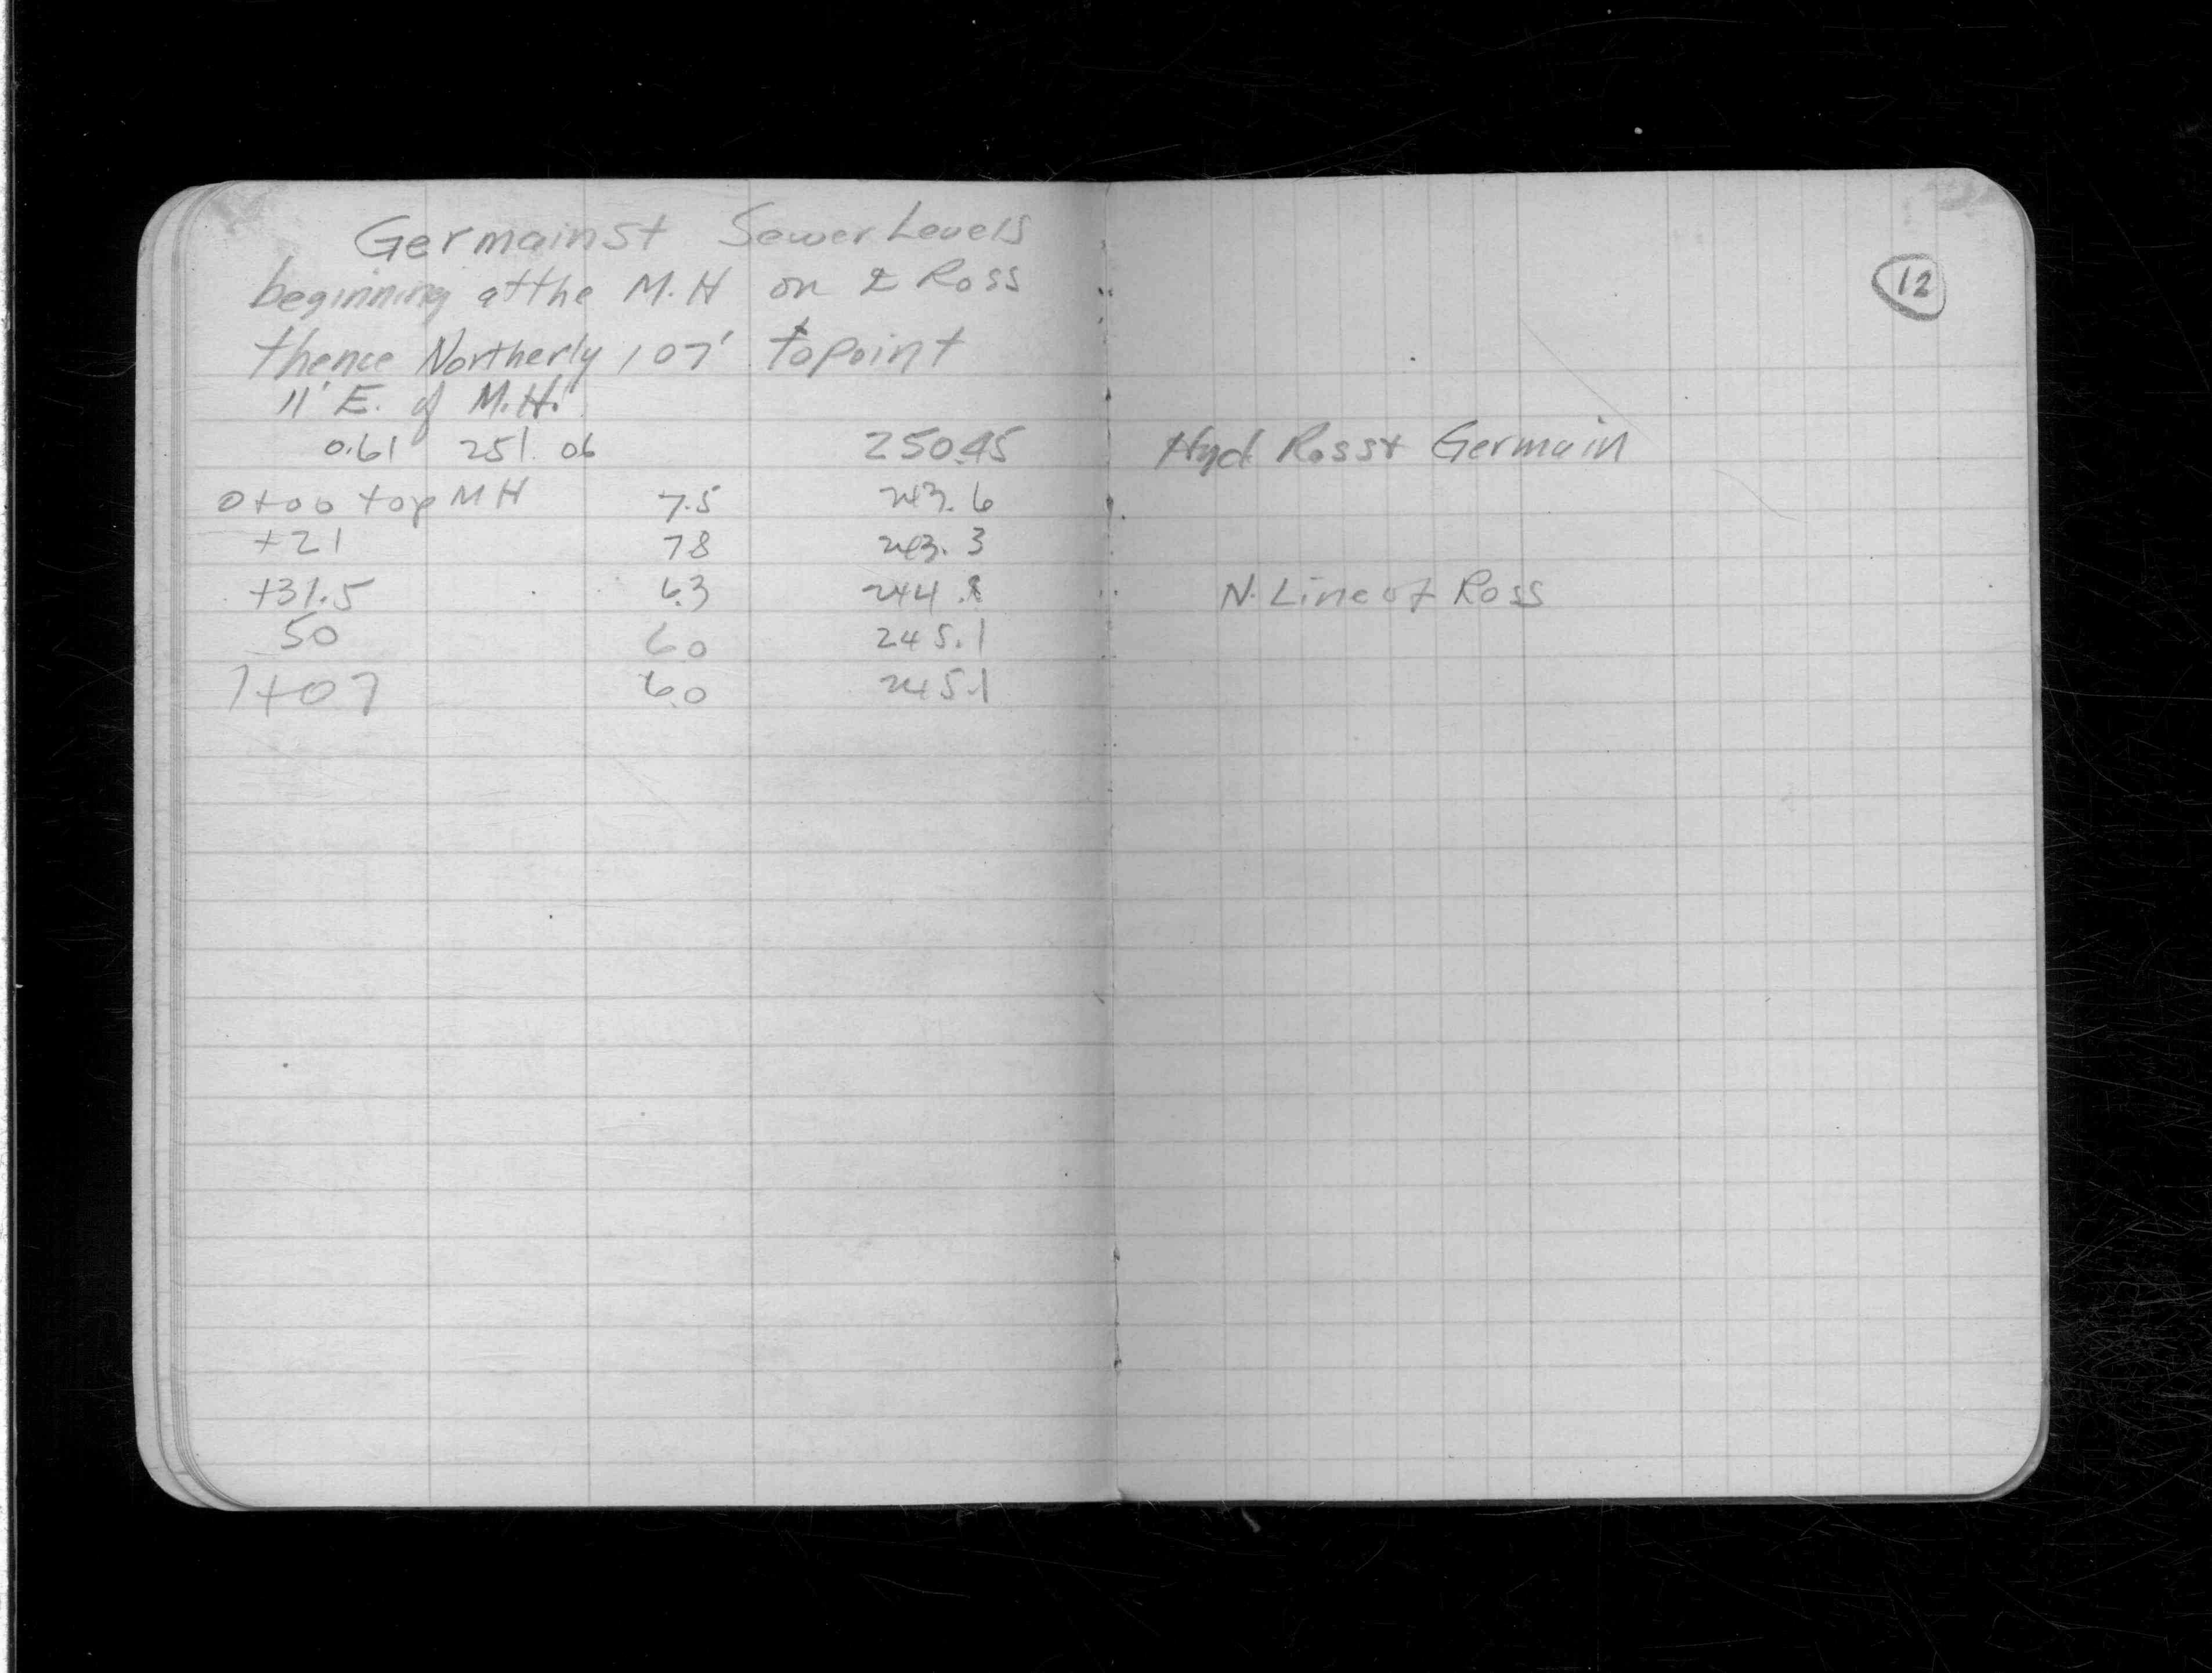 Germain St Sewer Levels
beginning at the M.H on ℄ Ross
thence Northerly 107' to point
11' E. of M.H.
0.61 251.06 250.45 Hyd Ross & Germain
0+00 top MH 7.5 243.6
+21 78 243.3
+31.5 6.3 244.8 N. Line of Ross
50 60 245.1
1+07 6.0 245.1
12